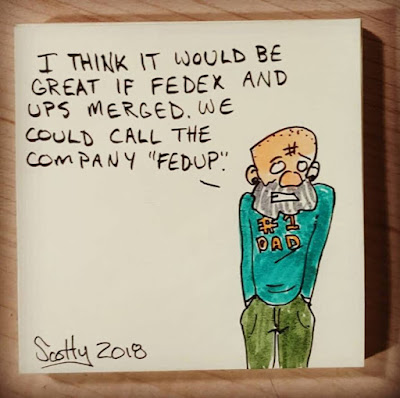 I THINK IT WOULD BE
GREAT IF FEDEX AND
UPS MERGED. WE
COULD CALL THE
COMPANY "FEDUP".
#1
DAD
Scotty 2018